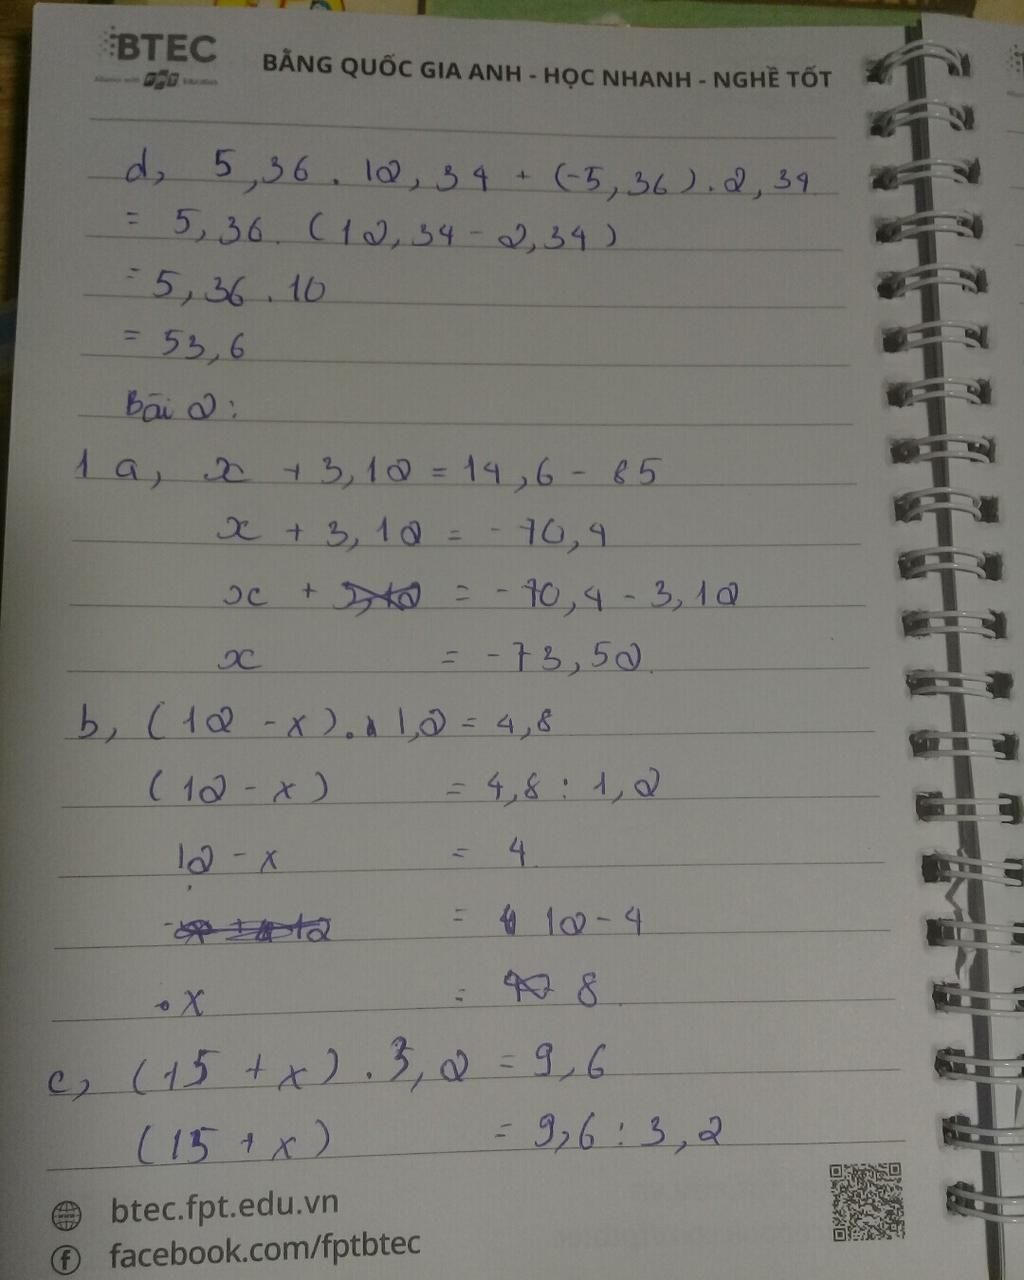 BTEC
Alliance with FPT Education
BẰNG QUỐC GIA ANH - HỌC NHANH - NGHỀ TỐT
d, 5,36 . 12,34 + (-5,36) . 2,34
= 5,36 . (12,34 - 2,34)
= 5,36 . 10
= 53,6
Bài 2:
1 a, x + 3,12 = 14,6 - 85
x + 3,12 = - 70,4
x + = - 70,4 - 3,12
x = - 73,52
b, (12 - x) . 1,2 = 4,8
(12 - x) = 4,8 : 1,2
12 - x = 4
= 12 - 4
x = 8
c, (15 + x) . 3,2 = 9,6
(15 + x) = 9,6 : 3,2
btec.fpt.edu.vn
facebook.com/fptbtec